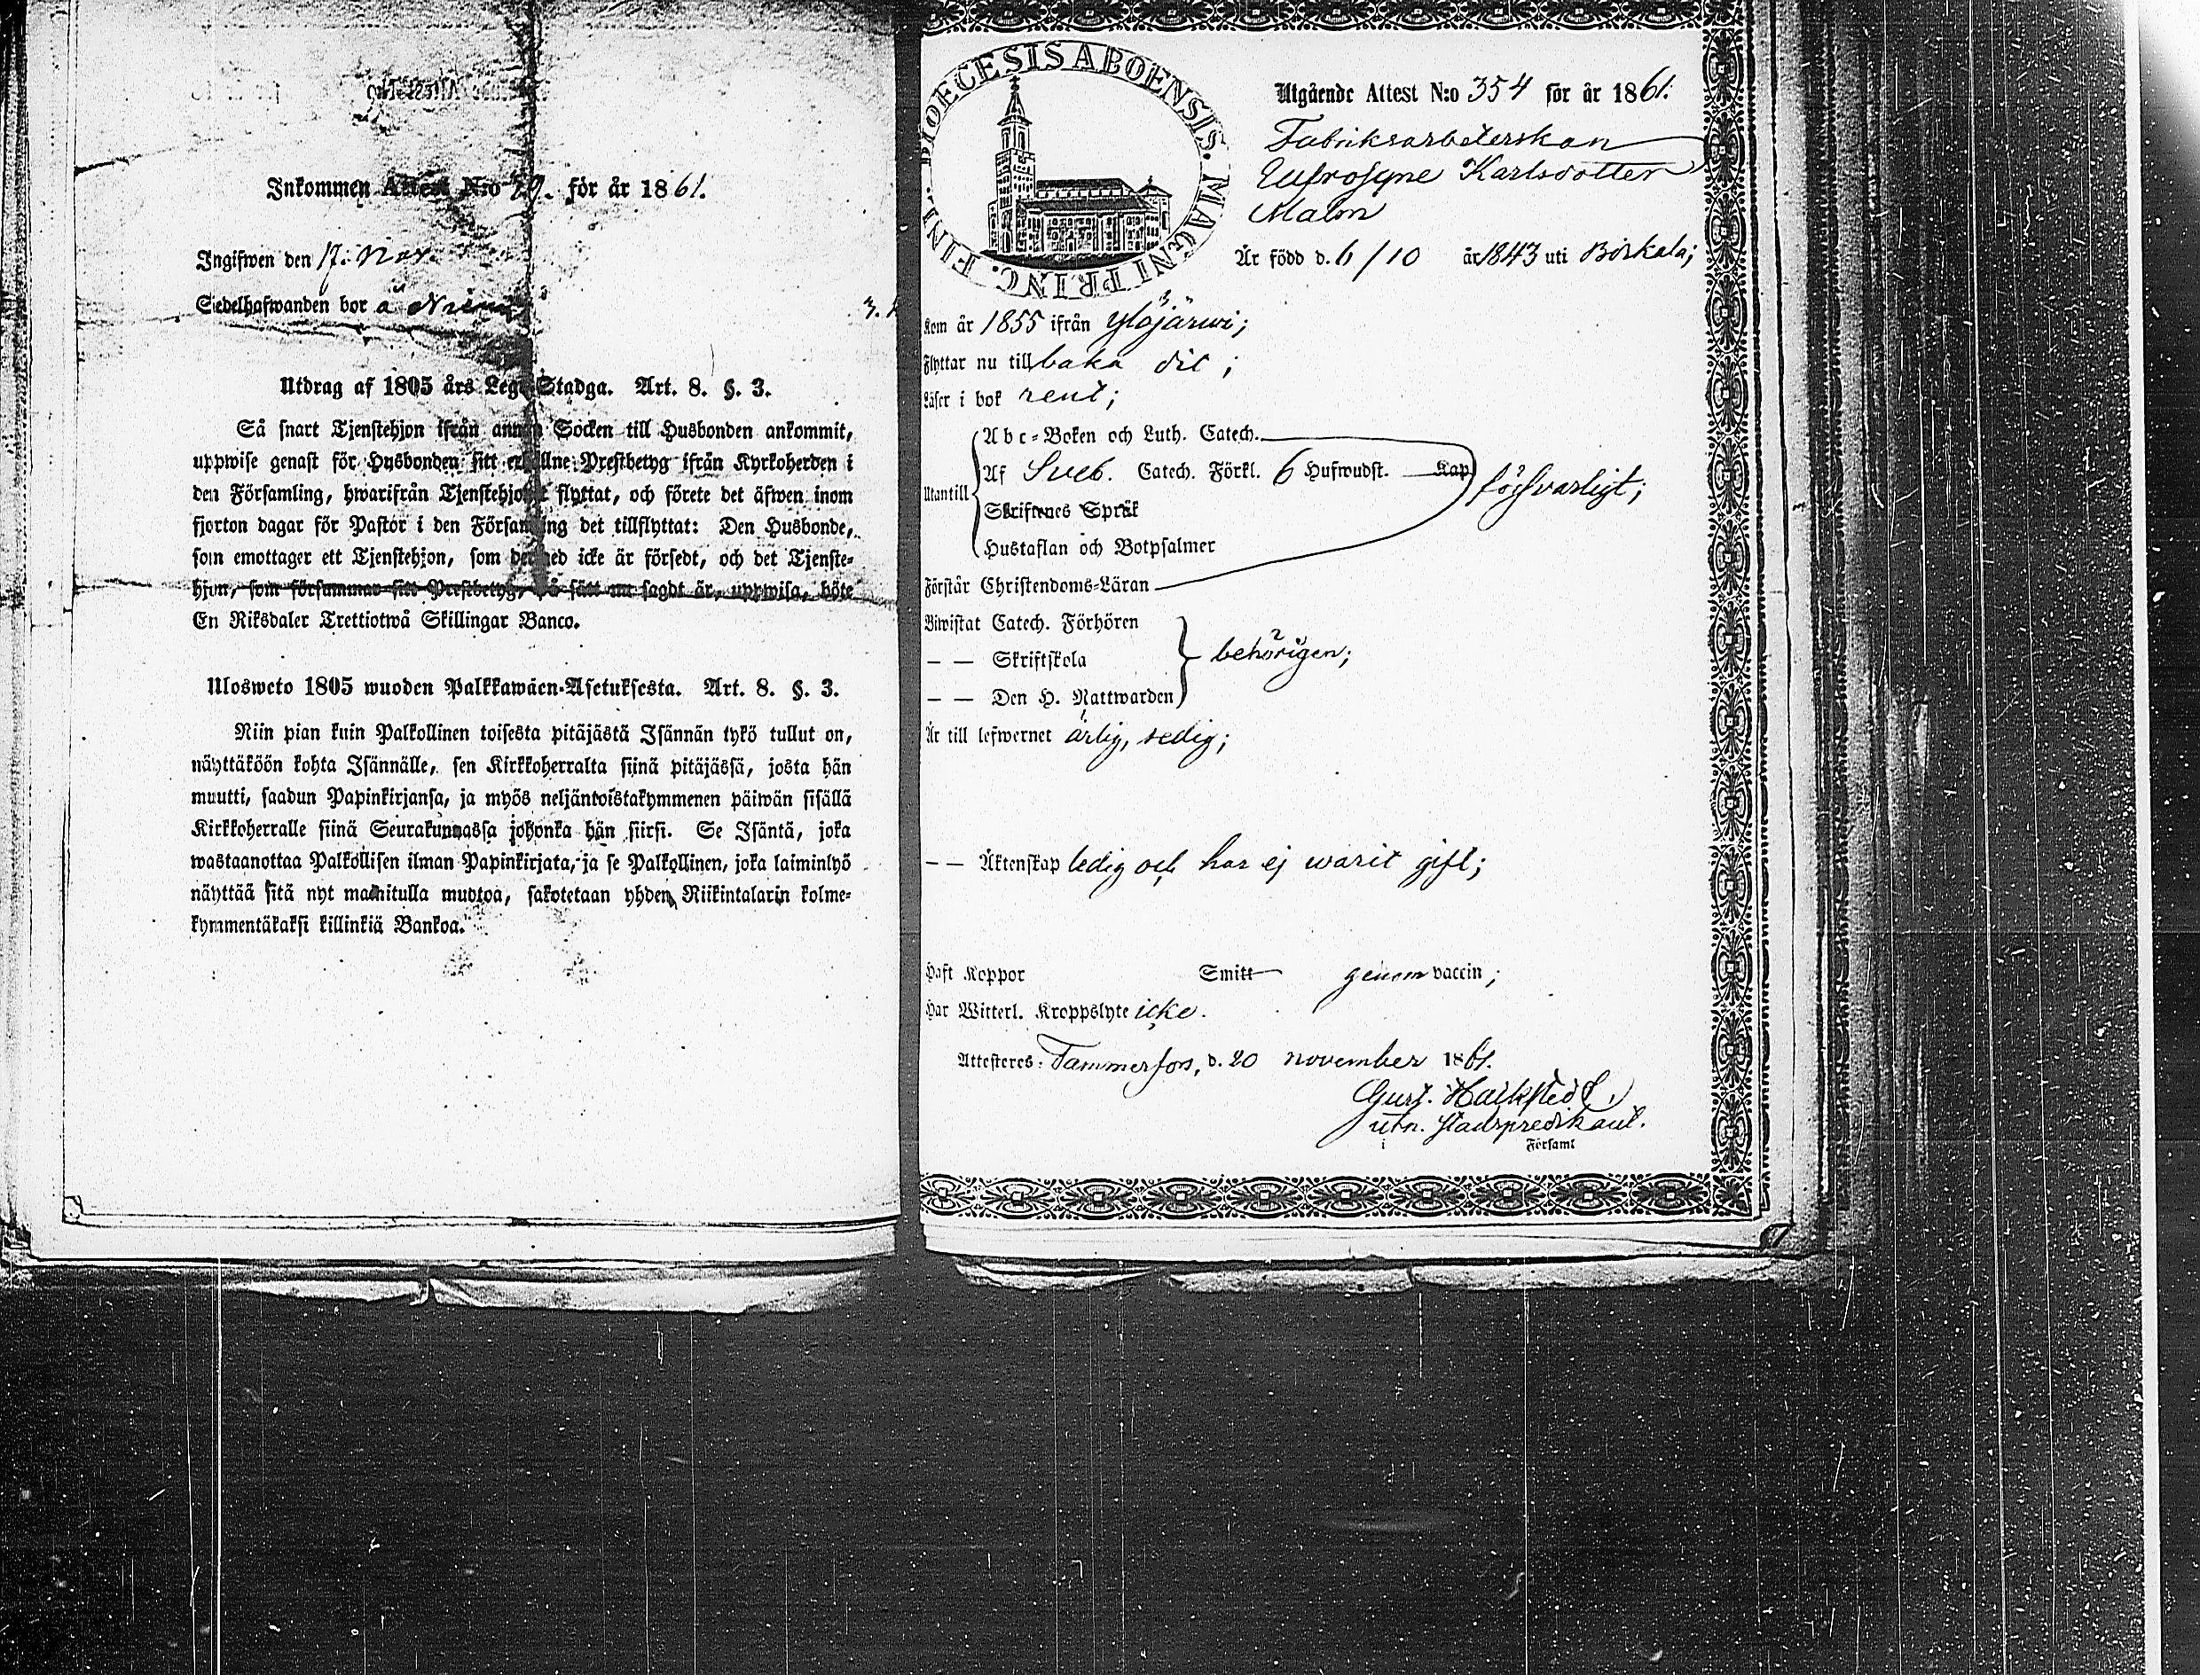 Inkommen Attest N:o för år 1861.
Ingifwen den 17. Nov.
Sedelhafwanden bor å
Utdrag af 1805 års Lego Stadga. Art. 8. §. 3.
Så snart Tjenstehjon ifrån annan Socken till Husbonden ankommit,
uppwise genast för Husbonden sitt erhållne Prestbetyg ifrån Kyrkoherden i
den Församling, hwarifrån Tjenstehjonet flyttat, och förete det äfwen inom
fjorton dagar för Pastor i den Församling det tillflyttat: Den Husbonde,
som emottager ett Tjenstehjon, som dermed icke är försedt, och det Tjenste-
hjon, som försummar sitt Prestbetyg, på sätt nu sagdt är, uppwisa, böte
En Riksdaler Trettiotwå Skillingar Banco.
Ulosweto 1805 wuoden Palkkawäen-Asetuksesta. Art. 8. §. 3.
Niin pian kuin Palkollinen toisesta pitäjästä Isännän tykö tullut on,
näyttäköön kohta Isännälle, sen Kirkkoherralta siinä pitäjässä, josta hän
muutti, saadun Papinkirjansa, ja myös neljäntoistakymmenen päiwän sisällä
Kirkkoherralle siinä Seurakunnassa johonka hän siirsi. Se Isäntä, joka
wastaanottaa Palkollisen ilman Papinkirjata, ja se Palkollinen, joka laiminlyö
näyttää sitä nyt mainitulla muotoa, sakotetaan yhden Riikintalarin kolme-
kymmentäkaksi killinkiä Bankoa.
DIOECESIS ABOENSIS. MAGNI PRINC. FINL.
Utgående Attest N:o 354 för år 1861.
Fabriksarbeterskan
Eufrosyne Karlsdotter
Malm
Är född d. 6/10 år 1843 uti Birkala;
Kom år 1855 ifrån Ylöjärwi;
Flyttar nu till baka dit;
Läser i bok rent;
Abc-Boken och Luth. Catech.
Af Sveb. Catech. Förkl. 6 Hufwudst. Kap
Utantill försvarligt;
Skriftenes Språk
Hustaflan och Botpsalmer
Förstår Christendoms-Läran
Biwistat Catech. Förhören
— — Skriftskola behörigen;
— — Den H. Nattwarden
Är till lefwernet ärlig, sedig;
— — Äktenskap ledig och har ej warit gift;
Haft Koppor Smitt genom vaccin;
Har Witterl. Kroppslyte icke.
Attesteres: Tammerfors, d. 20 november 1861.
stadspredikant.
i Församl